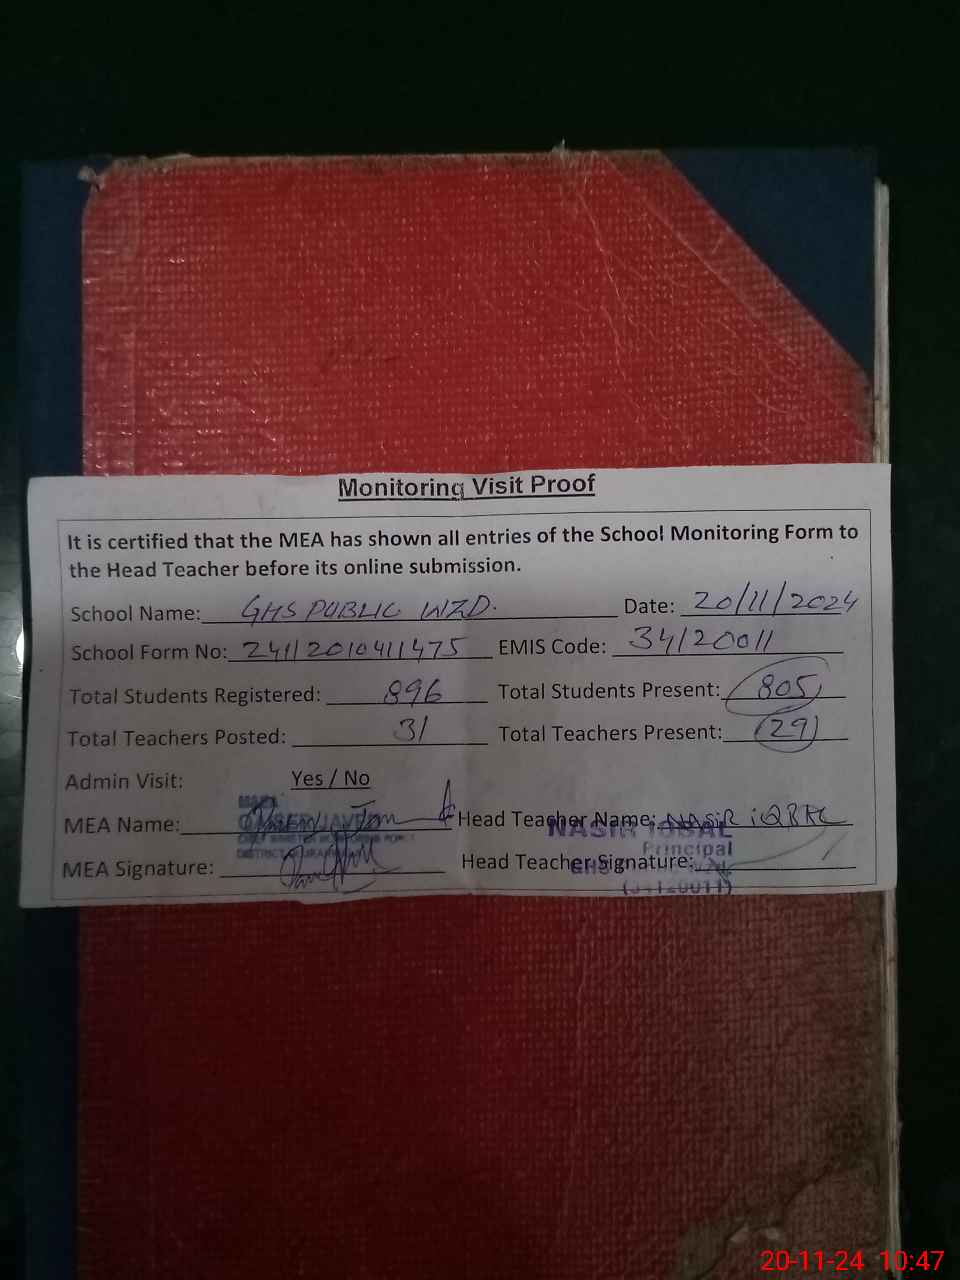 Monitoring Visit Proof
It is certified that the MEA has shown all entries of the School Monitoring Form to
the Head Teacher before its online submission.
School Name: GHS PUBLIC WZD. Date: 20/11/2024
School Form No: 24112010411475 EMIS Code: 34120011
Total Students Registered: 896 Total Students Present: 805
Total Teachers Posted: 31 Total Teachers Present: 29
Admin Visit: Yes / No
MEA Name: Head Teacher Name: NASIR iQBAL
NASIR IQBAL
Principal
MEA Signature: Head Teacher Signature:
GHS
(34120011)
20-11-24 10:47